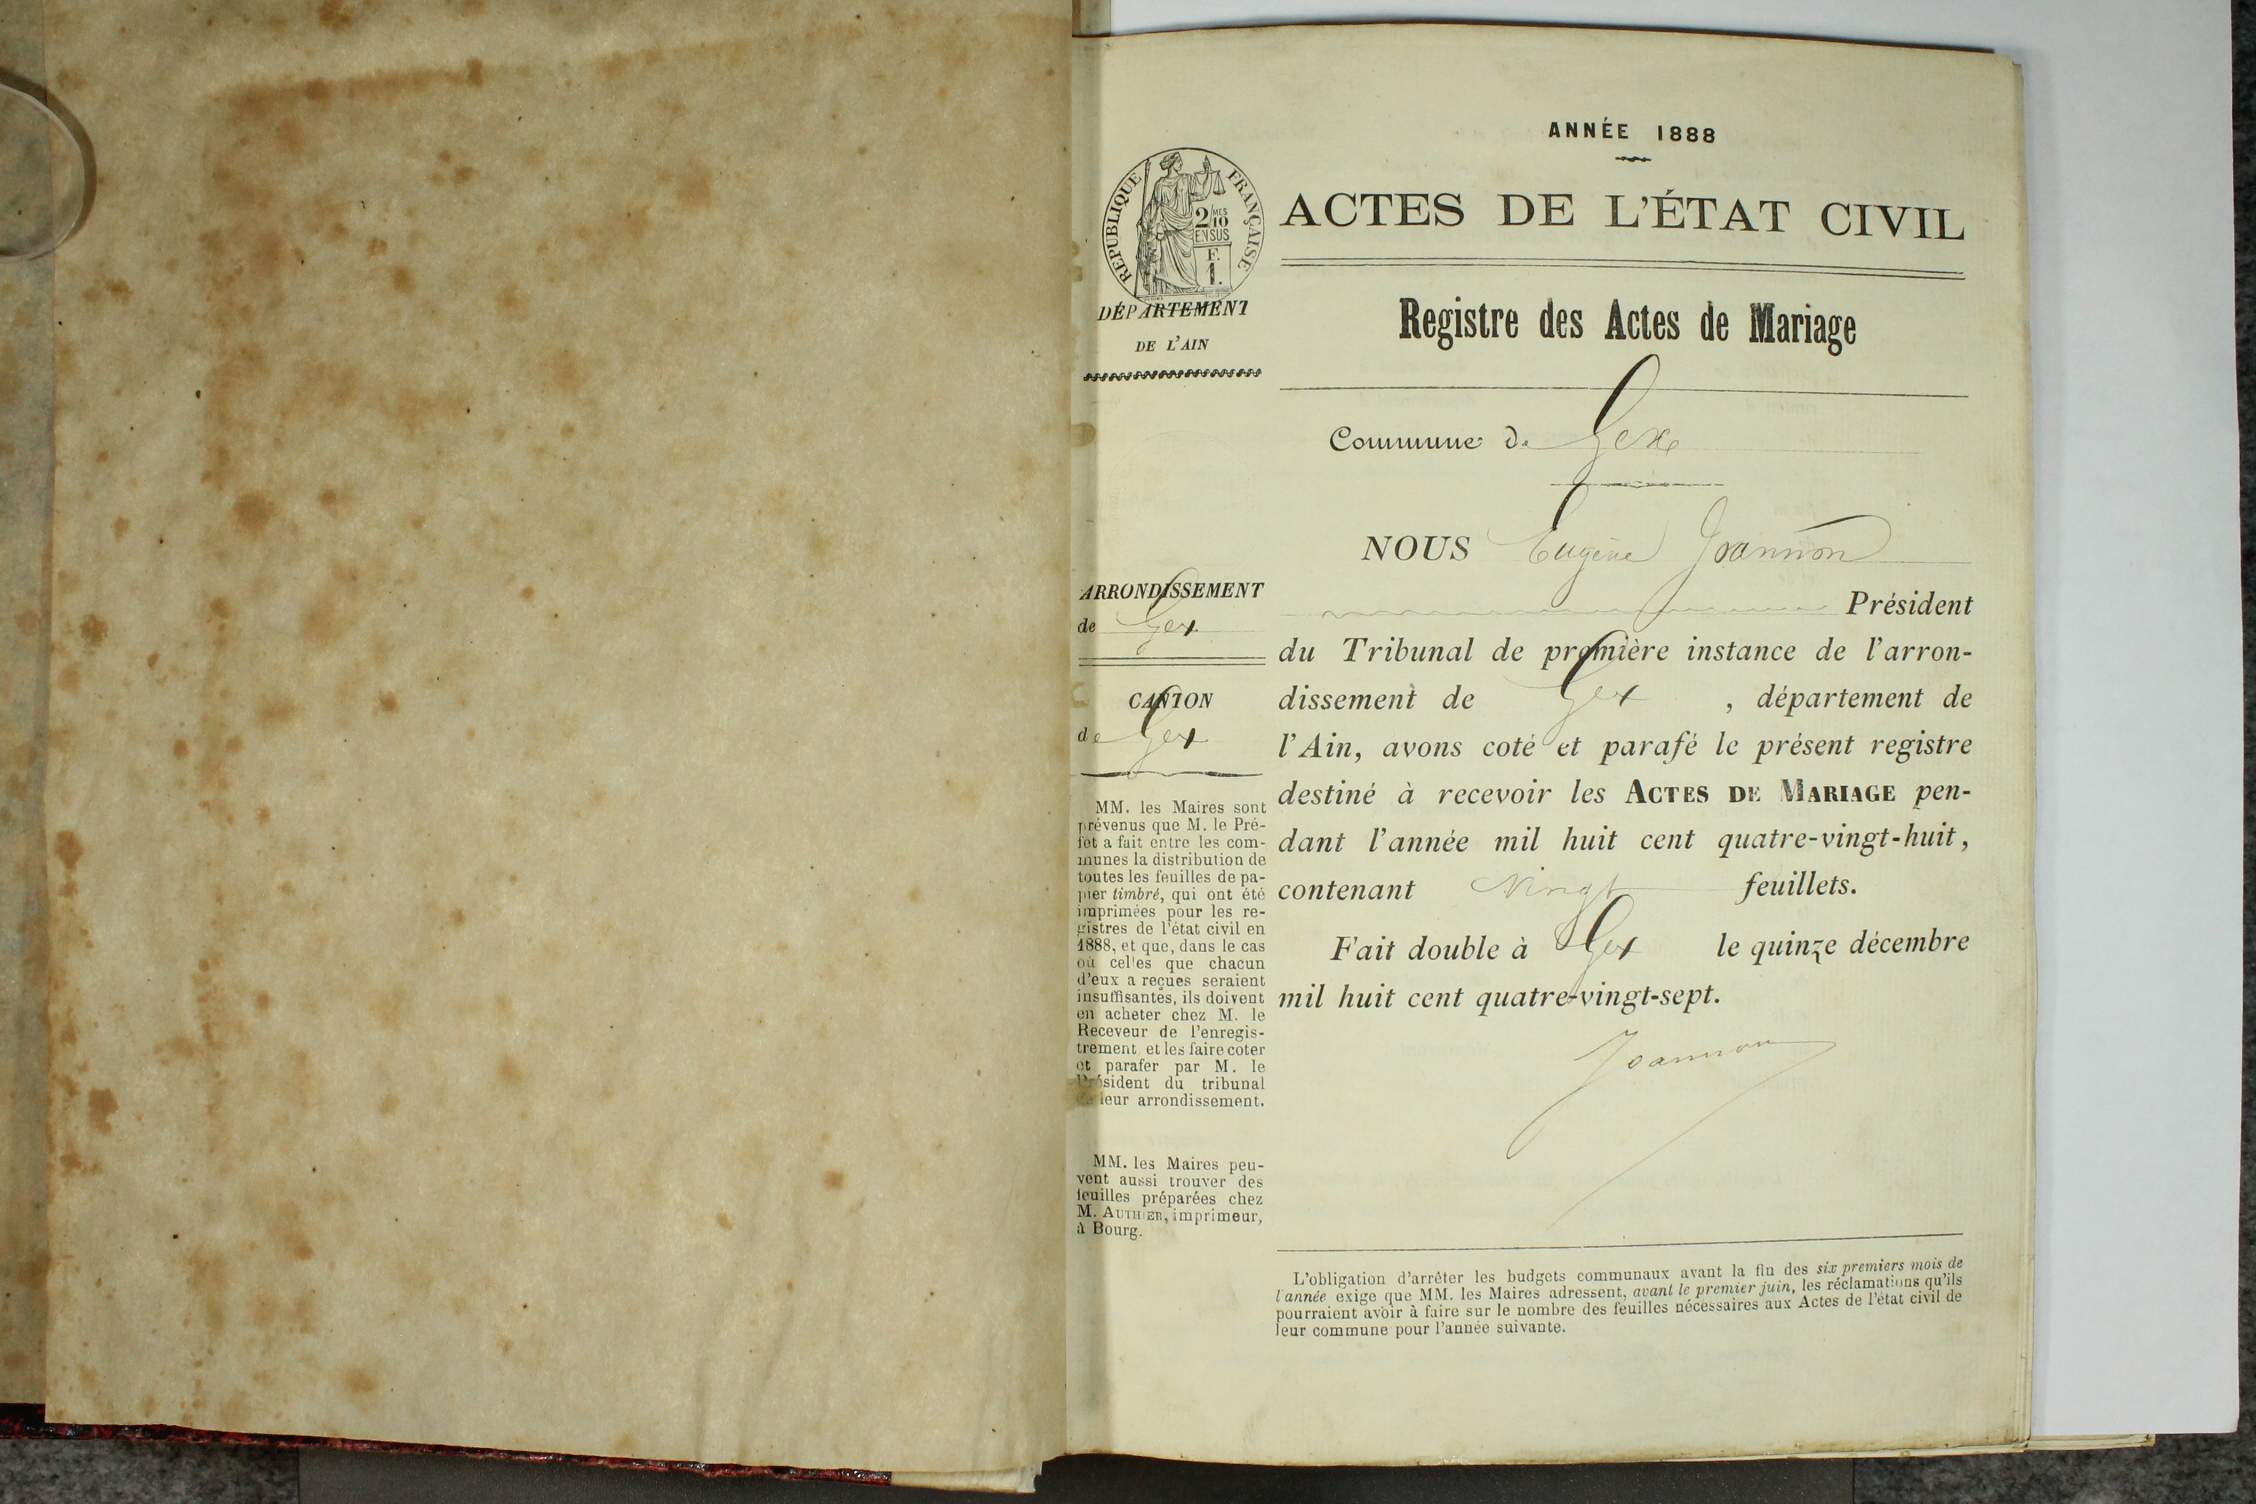 ANNÉE 1888
RÉPUBLIQUE FRANÇAISE
2/10 MES
EN SUS
F.
1.
ACTES DE L'ÉTAT CIVIL
DÉPARTEMENT
DE L'AIN
Registre des Actes de Mariage
Commune de Gex
NOUS Eugène Joannon
Président
ARRONDISSEMENT
de Gex
du Tribunal de première instance de l'arron-
dissement de Gex, département de
l'Ain, avons coté et parafé le présent registre
destiné à recevoir les ACTES DE MARIAGE pen-
dant l'année mil huit cent quatre-vingt-huit,
contenant vingt feuillets.
Fait double à Gex le quinze décembre
mil huit cent quatre-vingt-sept.
Joannon
CANTON
de Gex
MM. les Maires sont
prévenus que M. le Pré-
fet a fait entre les com-
munes la distribution de
toutes les feuilles de pa-
pier timbré, qui ont été
imprimées pour les re-
gistres de l'état civil en
1888, et que, dans le cas
où celles que chacun
d'eux a reçues seraient
insuffisantes, ils doivent
en acheter chez M. le
Receveur de l'enregis-
trement et les faire coter
et parafer par M. le
Président du tribunal
de leur arrondissement.
MM. les Maires peu-
vent aussi trouver des
feuilles préparées chez
M. AUTHIER, imprimeur,
à Bourg.
L'obligation d'arrêter les budgets communaux avant la fin des six premiers mois de
l'année exige que MM. les Maires adressent, avant le premier juin, les réclamations qu'ils
pourraient avoir à faire sur le nombre des feuilles nécessaires aux Actes de l'état civil de
leur commune pour l'année suivante.